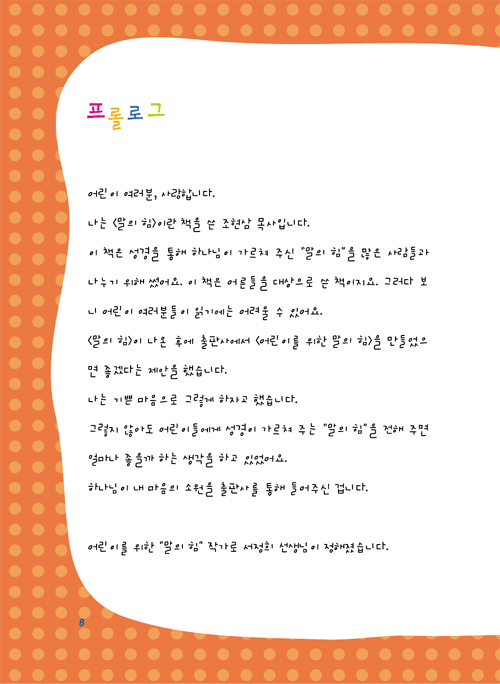 프롤로그
어린이 여러분, 사랑합니다.
나는 <말의 힘>이란 책을 쓴 조현삼 목사입니다.
이 책은 성경을 통해 하나님이 가르쳐 주신 "말의 힘"을 많은 사람들과
나누기 위해 썼어요. 이 책은 어른들을 대상으로 쓴 책이지요. 그러다 보
니 어린이 여러분들이 읽기에는 어려울 수 있어요.
<말의 힘>이 나온 후에 출판사에서 <어린이를 위한 말의 힘>을 만들었으
면 좋겠다는 제안을 했습니다.
나는 기쁜 마음으로 그렇게 하자고 했습니다.
그렇지 않아도 어린이들에게 성경이 가르쳐 주는 "말의 힘"을 전해 주면
얼마나 좋을까 하는 생각을 하고 있었어요.
하나님이 내 마음의 소원을 출판사를 통해 들어주신 겁니다.
어린이를 위한 "말의 힘" 작가로 서정희 선생님이 정해졌습니다.
8